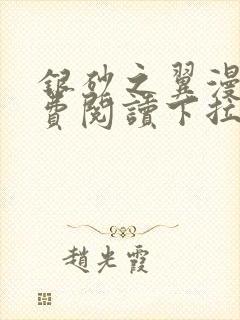 銀砂之翼漫
費閱讀下拉
趙光霞